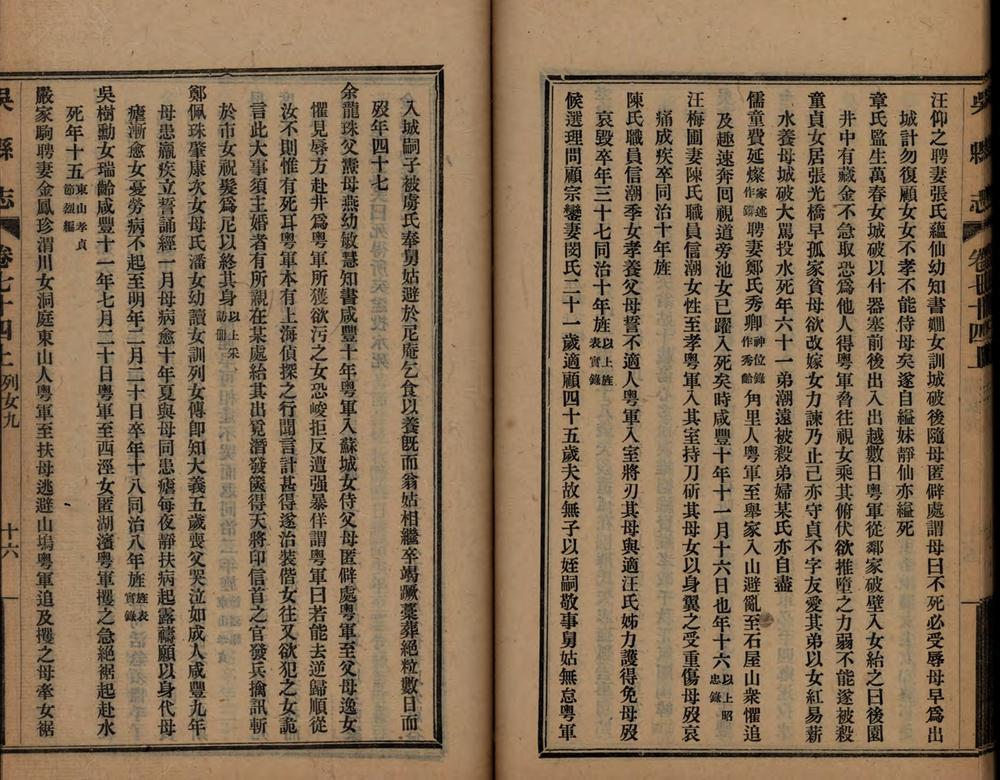 汪仰之聘妻張氏蘊仙幼知書嫺女訓城破後隨母匿僻處謂母曰不死必受辱母早爲出
城計勿復顧女女不孝不能侍母矣遂自縊妹靜仙亦縊死
章氏監生萬春女城破以付器塞前後出入出越數日粤軍從鄰家破壁入女紿之曰後園
井中有藏金不急取恐爲他人得粤軍脅往視女乘其俯伏欲推墮之力弱不能遂被殺
童貞女居張光橋早孤家貧母欲改嫁女力諫乃止己亦守貞不字友愛其弟以女紅易薪
水養母城破大駡投水死年六十一弟潮遠被殺弟婦某氏亦自盡
儒童費延燦家述作鏴聘妻鄭氏秀卿神位錄作秀齡甪里人粤軍至舉家入山避亂至石屋山衆懼追
及趣速奔囘視道旁池女已躍入死矣時咸豐十年十一月十六日也年十六以上昭忠錄
汪梅圃妻陳氏職員信潮女性至孝粤軍入其室持刀斫其母女以身翼之受重傷母歿哀
痛成疾卒同治十年旌
陳氏職員信潮季女孝養父母誓不適人粤軍入室將刃其母與適汪氏姊力護得免母歿
哀毀卒年三十七同治十年旌以上旌表實錄
候選理問顧宗鑾妻閔氏二十一歲適顧四十五歲夫故無子以姪嗣敬事舅姑無怠粤軍
入城嗣子被虜氏奉舅姑避於尼庵乞食以養旣而翁姑相繼卒竭蹶藁葬絕粒數日而
歿年四十七
余龍珠父燾母燕幼敏慧知書咸豐十年粤軍入蘇城女侍父母匿僻處粤軍至父母逸女
懼見辱方赴井爲粤軍所獲欲污之女恐峻拒反遭强暴佯謂粤軍曰若能去逆歸順從
汝不則惟有死耳粤軍本有上海偵探之行聞言計甚得遂治裝偕女往又欲犯之女詭
言此大事須主婚者有所親在某處紿其出覓潛發篋得天將印信首之官發兵擒訊斬
於市女祝髮爲尼以終其身以上采訪冊
鄭佩珠肇康次女母氏潘女幼讀女訓列女傳卽知大義五歲喪父哭泣如成人咸豐九年
母患羸疾立誓誦經一月母病愈十年夏與母同患瘧每夜靜扶病起露禱願以身代母
瘧漸愈女憂勞病不起至明年二月二十日卒年十八同治八年旌旌表實錄
吳樹勳女瑞齡咸豐十一年七月二十日粤軍至西涇女匿湖濱粤軍攫之急絕裾起赴水
死年十五東山孝貞節烈編
嚴家駒聘妻金鳳珍渭川女洞庭東山人粤軍至扶母逃避山塢粤軍追及攫之母牽女裾
吳縣志 卷七十四上 列女九 十六
吳縣志 卷七十四上